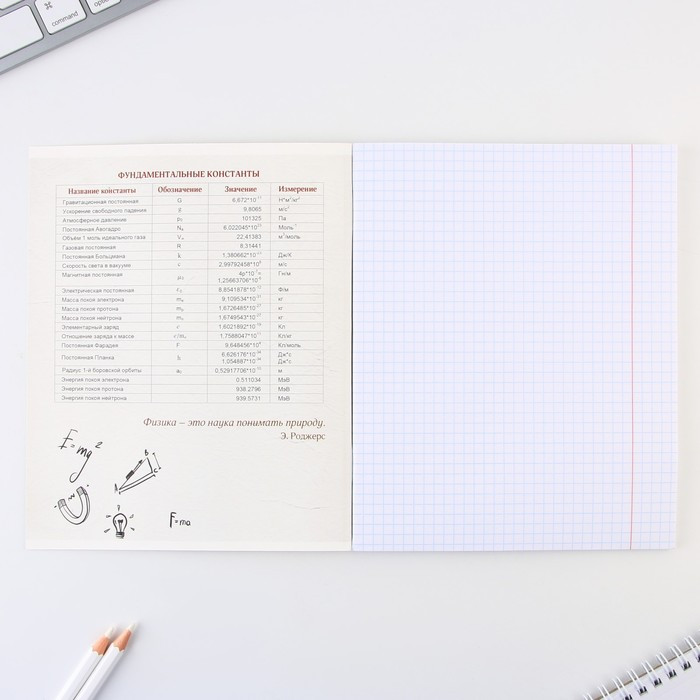 command
ФУНДАМЕНТАЛЬНЫЕ КОНСТАНТЫ
Название константы Обозначение Значение Измерение
Гравитационная постоянная G 6,672*10⁻¹¹ Н*м²/кг²
Ускорение свободного падения g 9,8065 м/с²
Атмосферное давление p₀ 101325 Па
Постоянная Авогадро Nₐ 6,022045*10²³ Моль⁻¹
Объём 1 моль идеального газа V₀ 22,41383 м³/моль
Газовая постоянная R 8,31441
Постоянная Больцмана k 1,380662*10⁻²³ Дж/К
Скорость света в вакууме c 2,99792458*10⁸ м/с
Магнитная постоянная μ₀ 4p*10⁻⁷= Гн/м
1,25663706*10⁻⁶
Электрическая постоянная ε₀ 8,8541878*10⁻¹² Ф/м
Масса покоя электрона mₑ 9,109534*10⁻³¹ кг
Масса покоя протона mₚ 1,6726485*10⁻²⁷ кг
Масса покоя нейтрона mₙ 1,6749543*10⁻²⁷ кг
Элементарный заряд e 1,6021892*10⁻¹⁹ Кл
Отношение заряда к массе e/mₑ 1,7588047*10¹¹ Кл/кг
Постоянная Фарадея F 9,648456*10⁴ Кл/моль
Постоянная Планка h 6,626176*10⁻³⁴ Дж*с
1,054887*10⁻³⁴ Дж*с
Радиус 1-й боровской орбиты a₀ 0,52917706*10⁻¹⁰ м
Энергия покоя электрона 0,511034 МэВ
Энергия покоя протона 938,2796 МэВ
Энергия покоя нейтрона 939,5731 МэВ
Физика – это наука понимать природу.
Э. Роджерс
E=mg²
A B C
F=ma